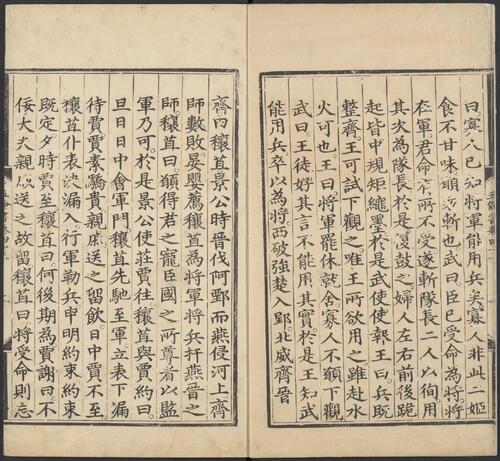 曰寡人已知將軍能用兵矣寡人非此二姬
食不甘味願勿斬也武曰臣已受命為將將
在軍君命有所不受遂斬隊長二人以徇用
其次為隊長於是復鼓之婦人左右前後跪
起皆中規矩繩墨於是武使使報王曰兵既
整齊王可試下觀之唯王所欲用之雖赴水
火可也王曰將軍罷休就舍寡人不願下觀
武曰王徒好其言不能用其實於是王知武
能用兵卒以為將西破強楚入郢北威齊晉
齊田穰苴景公時晉伐阿鄄而燕侵河上齊
師數敗晏嬰薦穰苴為將軍將兵扞燕晉之
師穰苴曰願得君之寵臣國之所尊者以監
軍乃可於是景公使莊賈往穰苴與賈約曰
旦日日中會軍門穰苴先馳至軍立表下漏
待賈賈素驕貴親戚送之留飲日中賈不至
穰苴仆表決漏入行軍勒兵申明約束約束
既定夕時賈至穰苴曰何後期為賈謝曰不
佞大夫親戚送之故留穰苴曰將受命則忘